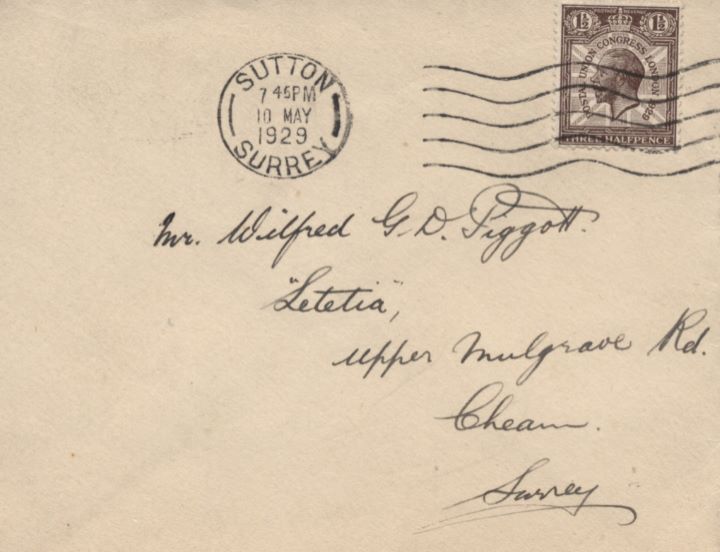 1½ 1½
POSTAL UNION CONGRESS LONDON 1929
THREE HALFPENCE
SUTTON
7 45 PM
10 MAY
1929
SURREY
Mr. Wilfred G. D. Piggott.
"Letetia",
Upper Mulgrave Rd.
Cheam.
Surrey